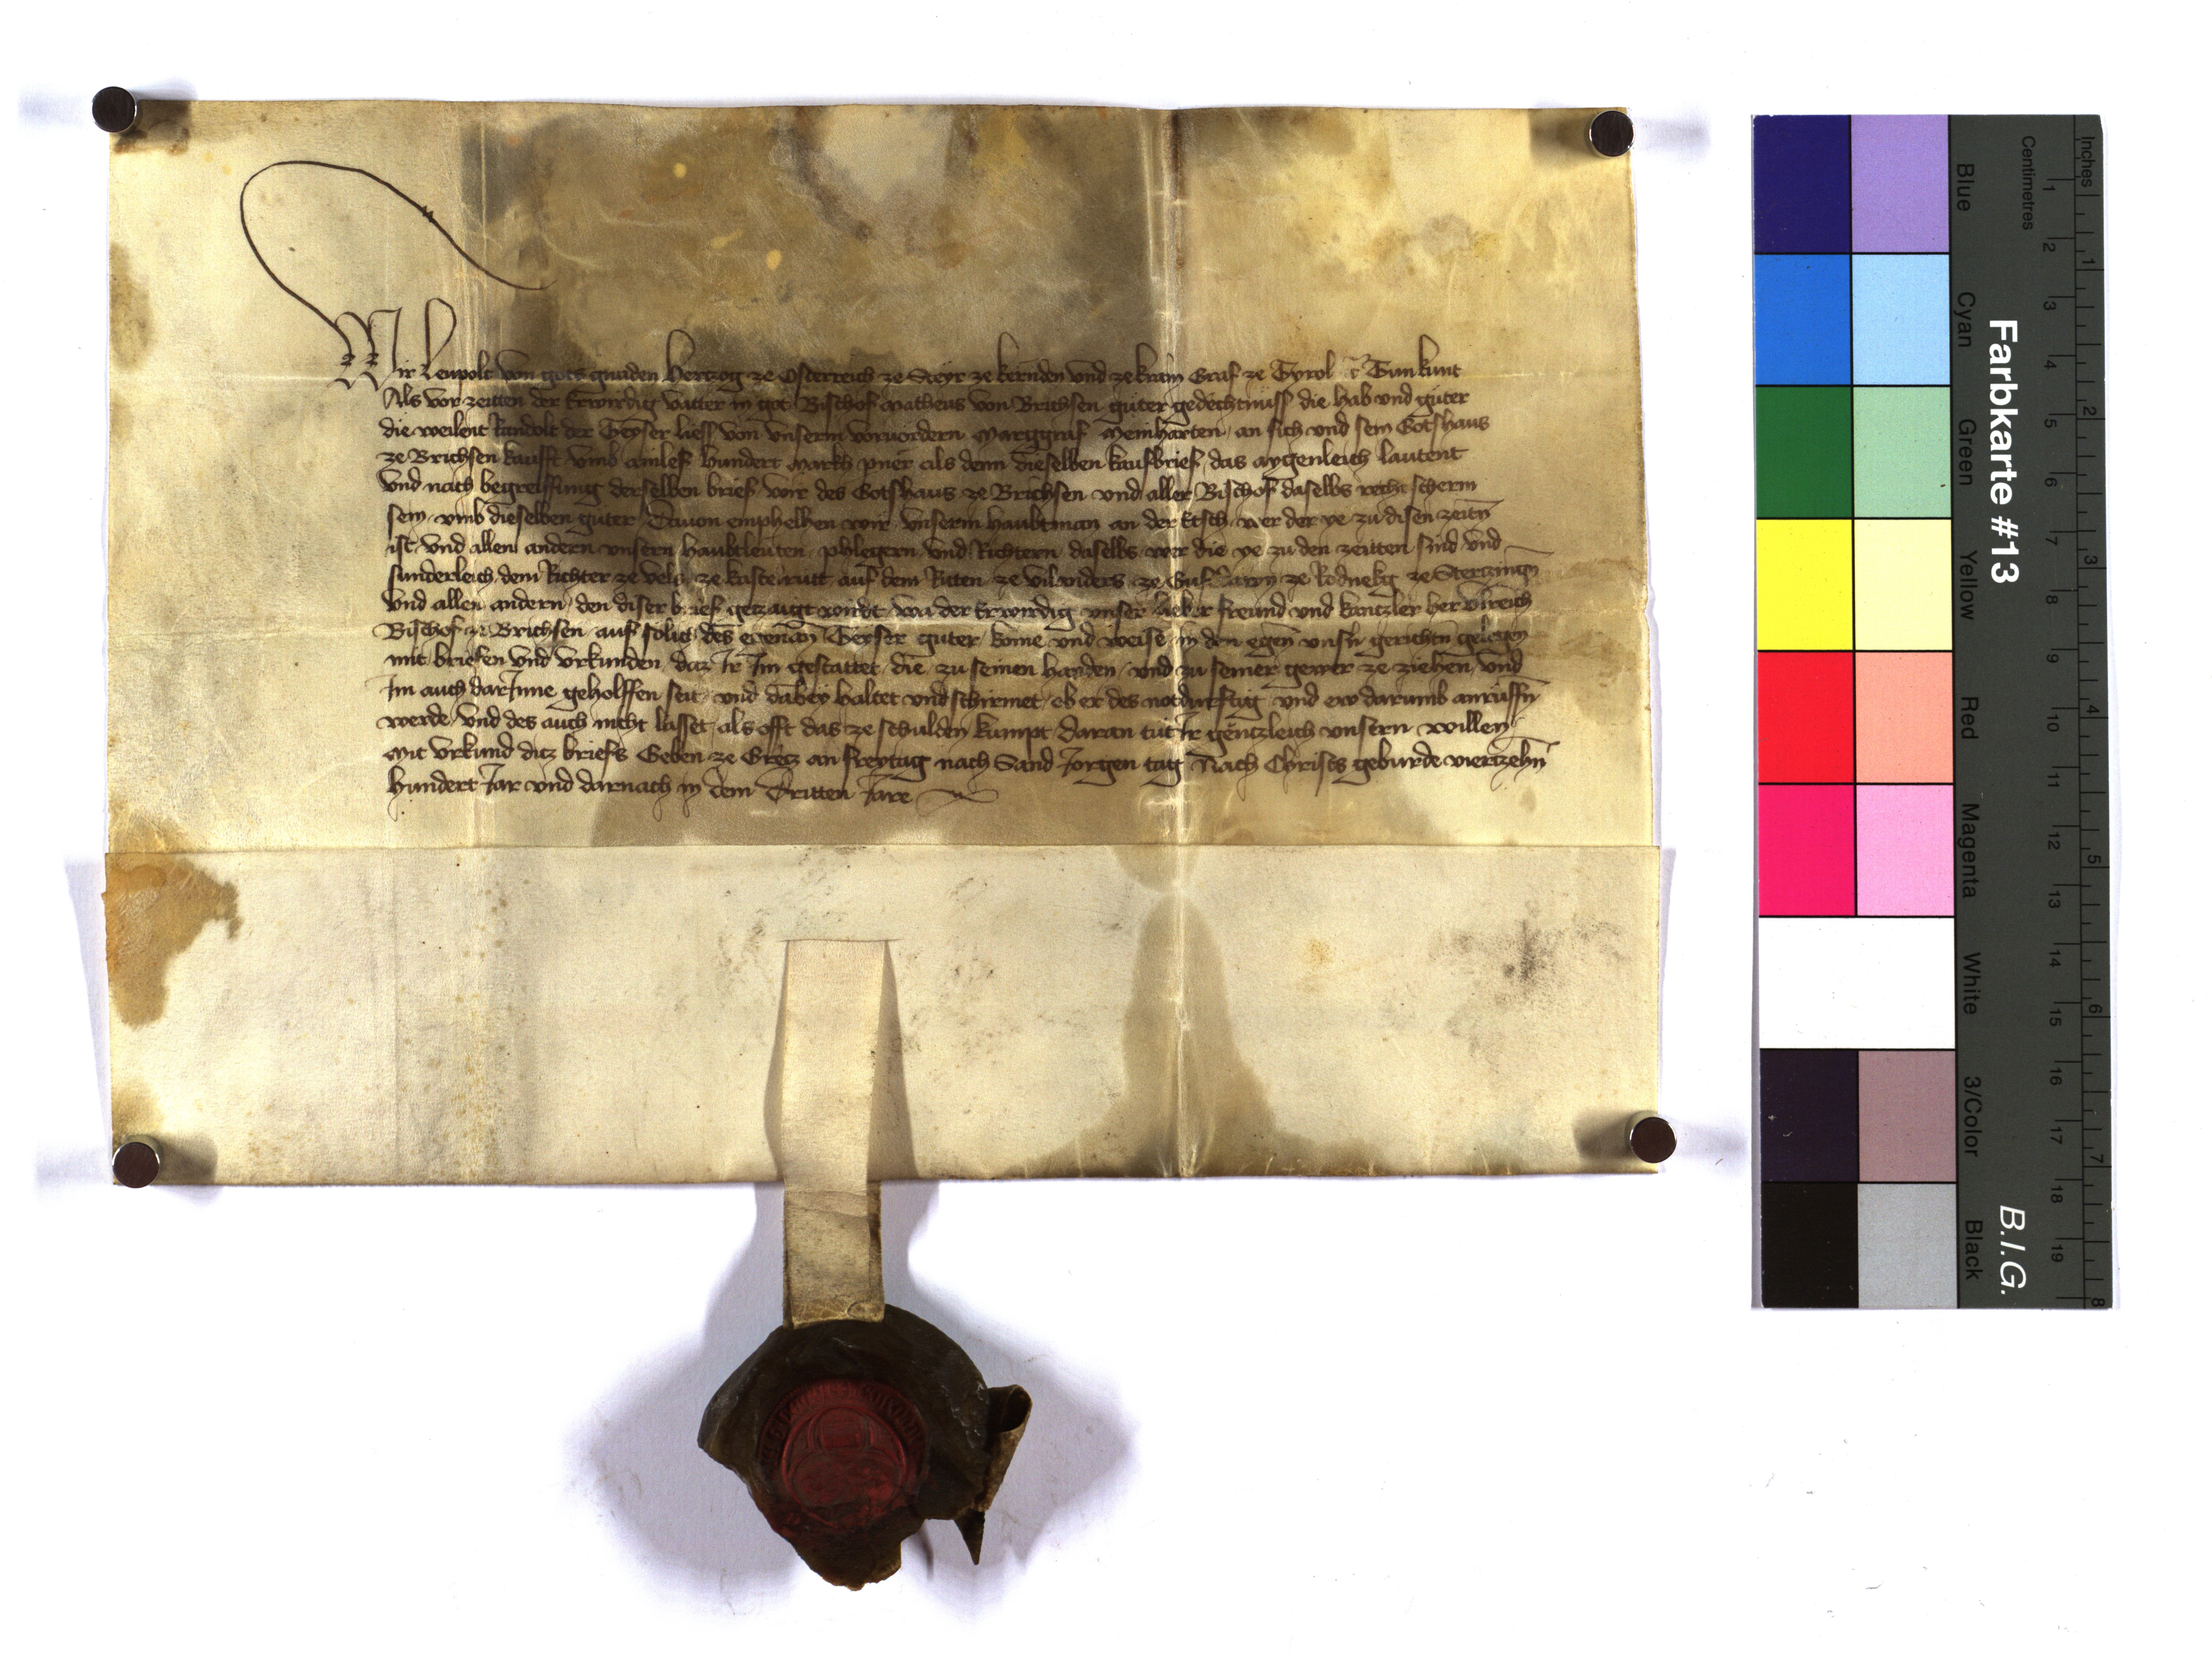 Wir Leupolt von gots gnaden Hertzog ze Osterreich ze Steyr ze kernden und ze krain Graf ze Tyrol etc Tun kunt
Als vor zeitten der Erwirdig vatter in got Bischof Matheus von Brichsen guter gedechtnuss die hab und guter
die weilent kandolt der Teyser liess von unserm vorvordern Marggraf Meinharten an sich und sein Gotshaus
ze Brichsen kaufft umb ainlef hundert markh pner als denn dieselben kaufbrief das aygenleich lautent
Und nach begreiffung derselben brief wir des Gotshaus ze Brichsen und aller Bischof daselbs recht scherm
sein umb dieselben guter Davon emphelhen wir unserm haubtman an der Etsch wer der ye zu disen zeitn
ist und allen andern unsern haubtleuten phlegern und Richtern daselbs wer die ye zu den zeitten sind und
sunderleich dem Richter ze vels ze kastelrutt auf dem Ritten ze vilanders ze Gufidawn ze Rodnekg ze Stertzingn
Und allen andern den diser brief getzaigt wirdt wa der Erwirdig unser lieber freund und kantzler her Ulreich
Bischof ze Brichsen auf solich des egenan Teyser guter kome und weise in den egen unsn gerichtn gelegen
mit briefen und urkunden daz Ir Im gestattet die zu seinen handen und zu seiner gewer ze ziehen und
Im auch darInne geholffen seit und dabey haltet und schirmet ob er des notdurftig und ew darumb anruffn
werde und des auch nicht lasset als offt das ze schulden kumpt daran tut Ir gentzleich unsern willen
Mit urkund ditz briefs Geben ze Gretz an freytag nach Sand Jorgen tag Nach Christs geburde viertzehn
hundert Jar und darnach in dem Dritten Jare
Inches
Centimetres
1 2 3 4 5 6 7 8 9 10 11 12 13 14 15 16 17 18 19
1 2 3 4 5 6 7 8
Farbkarte #13
B.I.G.
Blue
Cyan
Green
Yellow
Red
Magenta
White
3/Color
Black